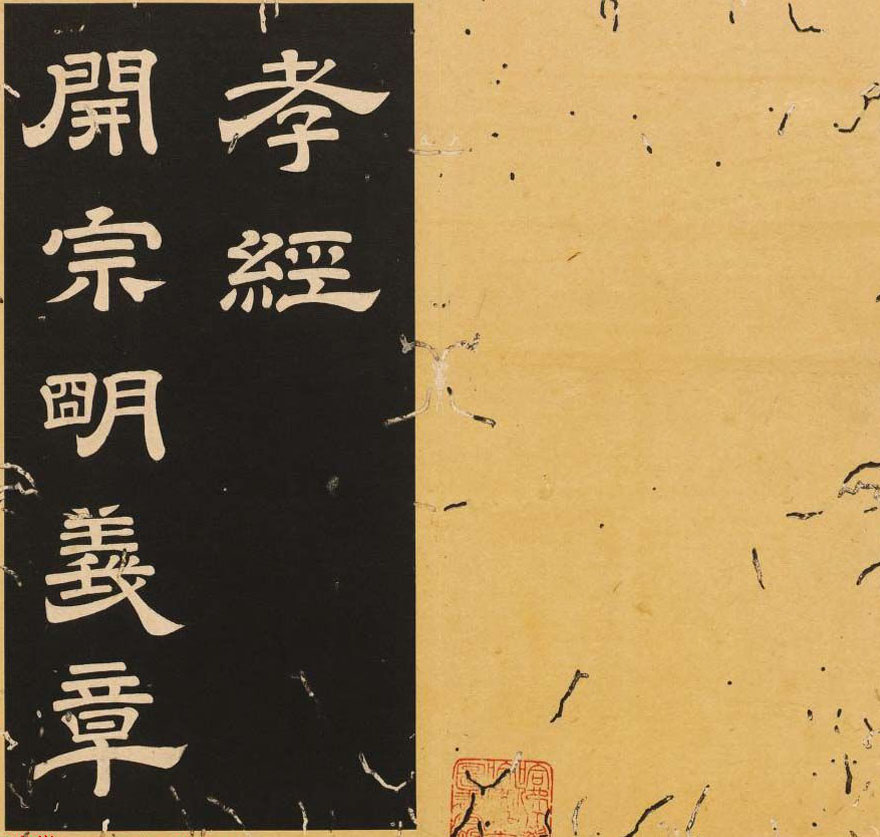 孝經
開宗明義章